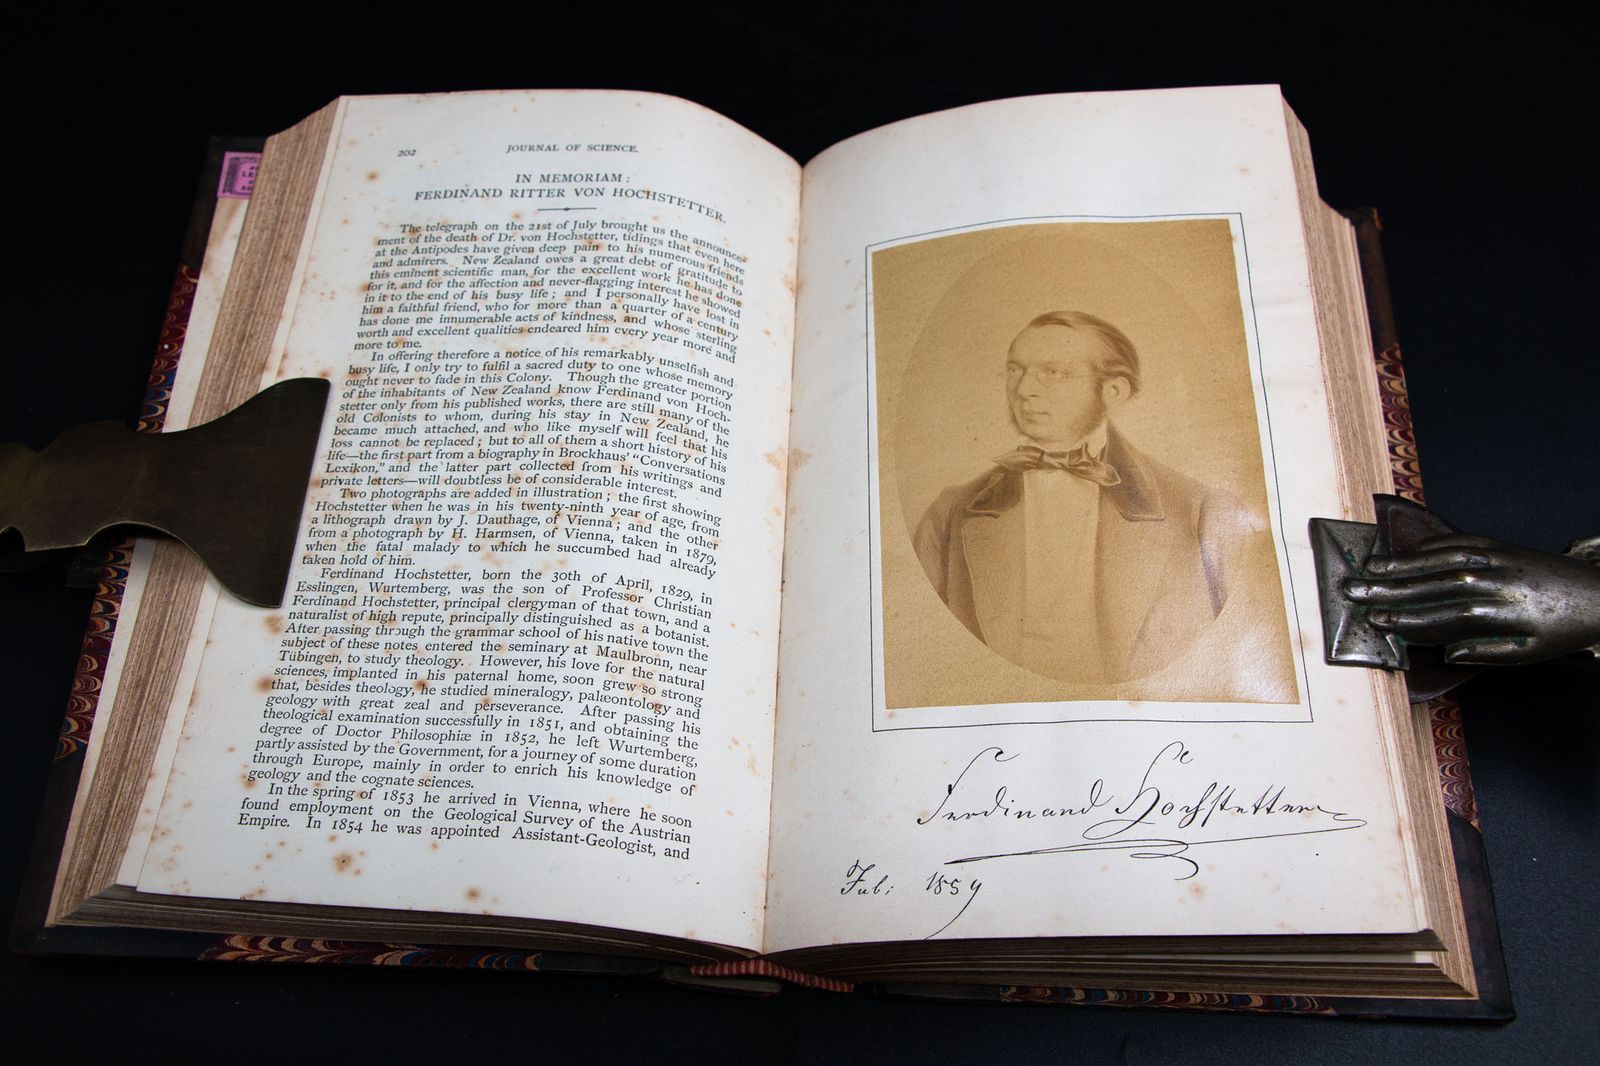 202 JOURNAL OF SCIENCE.
IN MEMORIAM:
FERDINAND RITTER VON HOCHSTETTER.
The telegraph on the 21st of July brought us the announce-
ment of the death of Dr. von Hochstetter, tidings that even here
at the Antipodes have given deep pain to his numerous friends
and admirers. New Zealand owes a great debt of gratitude to
this eminent scientific man, for the excellent work he has done
for it, and for the affection and never-flagging interest he showed
in it to the end of his busy life; and I personally have lost in
him a faithful friend, who for more than a quarter of a century
has done me innumerable acts of kindness, and whose sterling
worth and excellent qualities endeared him every year more and
more to me.
In offering therefore a notice of his remarkably unselfish and
busy life, I only try to fulfil a sacred duty to one whose memory
ought never to fade in this Colony. Though the greater portion
of the inhabitants of New Zealand know Ferdinand von Hoch-
stetter only from his published works, there are still many of the
old Colonists to whom, during his stay in New Zealand, he
became much attached, and who like myself will feel that his
loss cannot be replaced; but to all of them a short history of his
life—the first part from a biography in Brockhaus' "Conversations
Lexikon," and the latter part collected from his writings and
private letters—will doubtless be of considerable interest.
Two photographs are added in illustration; the first showing
Hochstetter when he was in his twenty-ninth year of age, from
a lithograph drawn by J. Dauthage, of Vienna; and the other
from a photograph by H. Harmsen, of Vienna, taken in 1879,
when the fatal malady to which he succumbed had already
taken hold of him.
Ferdinand Hochstetter, born the 30th of April, 1829, in
Esslingen, Wurtemberg, was the son of Professor Christian
Ferdinand Hochstetter, principal clergyman of that town, and a
naturalist of high repute, principally distinguished as a botanist.
After passing through the grammar school of his native town the
subject of these notes entered the seminary at Maulbronn, near
Tübingen, to study theology. However, his love for the natural
sciences, implanted in his paternal home, soon grew so strong
that, besides theology, he studied mineralogy, palæontology and
geology with great zeal and perseverance. After passing his
theological examination successfully in 1851, and obtaining the
degree of Doctor Philosophiæ in 1852, he left Wurtemberg,
partly assisted by the Government, for a journey of some duration
through Europe, mainly in order to enrich his knowledge of
geology and the cognate sciences.
In the spring of 1853 he arrived in Vienna, where he soon
found employment on the Geological Survey of the Austrian
Empire. In 1854 he was appointed Assistant-Geologist, and
Ferdinand Hochstetter
1859